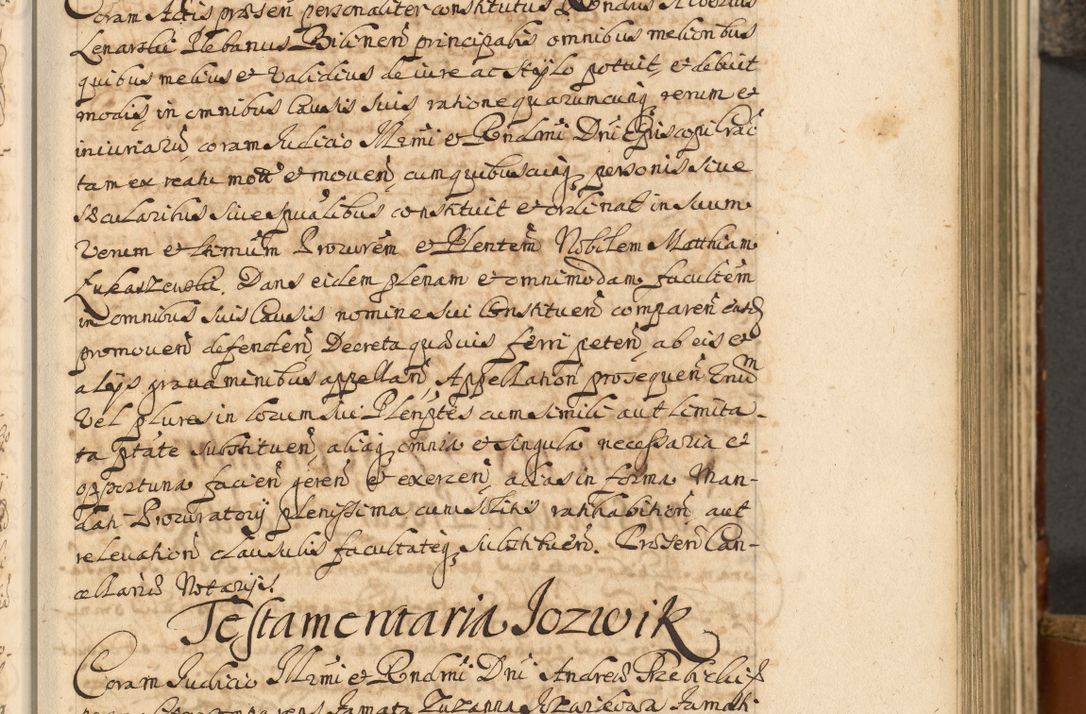 Coram Actis præsen personaliter constitutus Rndus Albertus
Lenarski Plebanus Bilinen principalis omnibus melioribus
quibus melius et validius de iure ac stylo potuit, et debuit
modis, in omnibus Causis suis ratione quarumcunq rerum et
iniuriarū coram Judicio Illrmi et Rndmi Dni Episcopi Crac
tam ex reatu mott et moven, cum quibuscunq personis sive
sæcularibus sive spūalibus constituit et ordinat in suum
verum et ltimum Procurem et Plentem Nobilem Matthiam
Łukaszewski. Dans eidem plenam et omnimodam facultem
in omnibus suis Causis nomine sui Constituen comparen easq
promoven defenden, Decreta quævis ferri peten, ab eis et
alijs gravaminibus appellan, Appellation prosequen Unum
vel plures in locum sui Plenptes cum simili aut limita-
ta ptate substituen, aliaq omnia et singula necessaria et
opportuna facien geren et exercen, ac las in forma Man-
dati Procuratorij plenissima cum solitis rathihabition, aut
relevation clausulis facultateq substituen. Præsen Can-
cellariæ Notarijs.
Testamentaria Jozwik
Coram Judicio Illrmi et Rndmi Dni Andreæ Trzebicki
comparens famata Zuzanna Jozwikowa famati